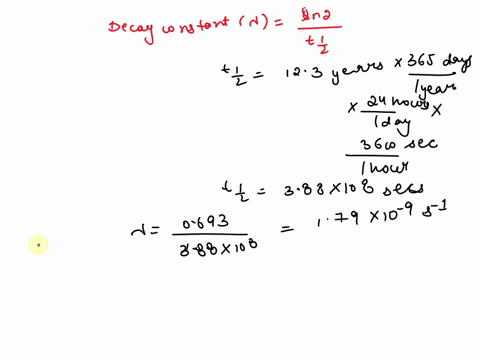 Decay constant (λ) = ln2 / t 1/2
t 1/2 = 12.3 years × 365 days / 1 years
× 24 hours / 1 day ×
3600 sec / 1 hour
t 1/2 = 3.88 × 10^8 secs
λ = 0.693 / 3.88 × 10^8 = 1.79 × 10^-9 s^-1